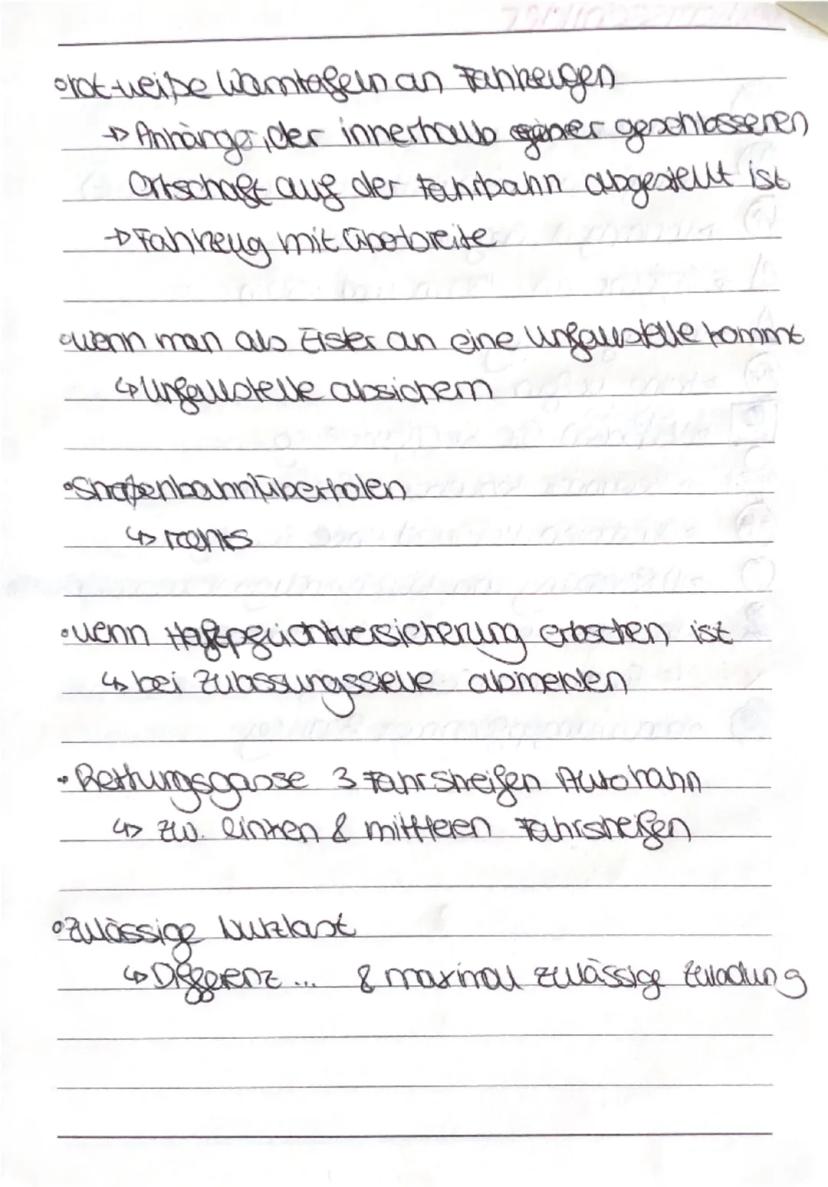 • rot-weiße Warntafeln an Fahrzeugen
→ Anhänger, der innerhalb einer geschlossenen
Ortschaft auf der Fahrbahn abgestellt ist
→ Fahrzeug mit Überbreite
• wenn man als Erster an eine Unfallstelle kommt
↳ Unfallstelle absichern
• Straßenbahn überholen
↳ rechts
• wenn Haftpflichtversicherung erloschen ist
↳ bei Zulassungsstelle abmelden
• Rettungsgasse 3 Fahrstreifen Autobahn
↳ zw. linken & mittleren Fahrstreifen
• zulässige Nutzlast
↳ Differenz ... & maximal zulässige Zuladung